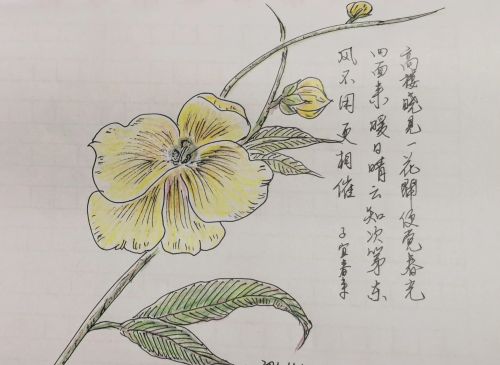 高楼晓见一花開便觉春光
四面来暖日晴云知次第东
风不用更相催
子宜春